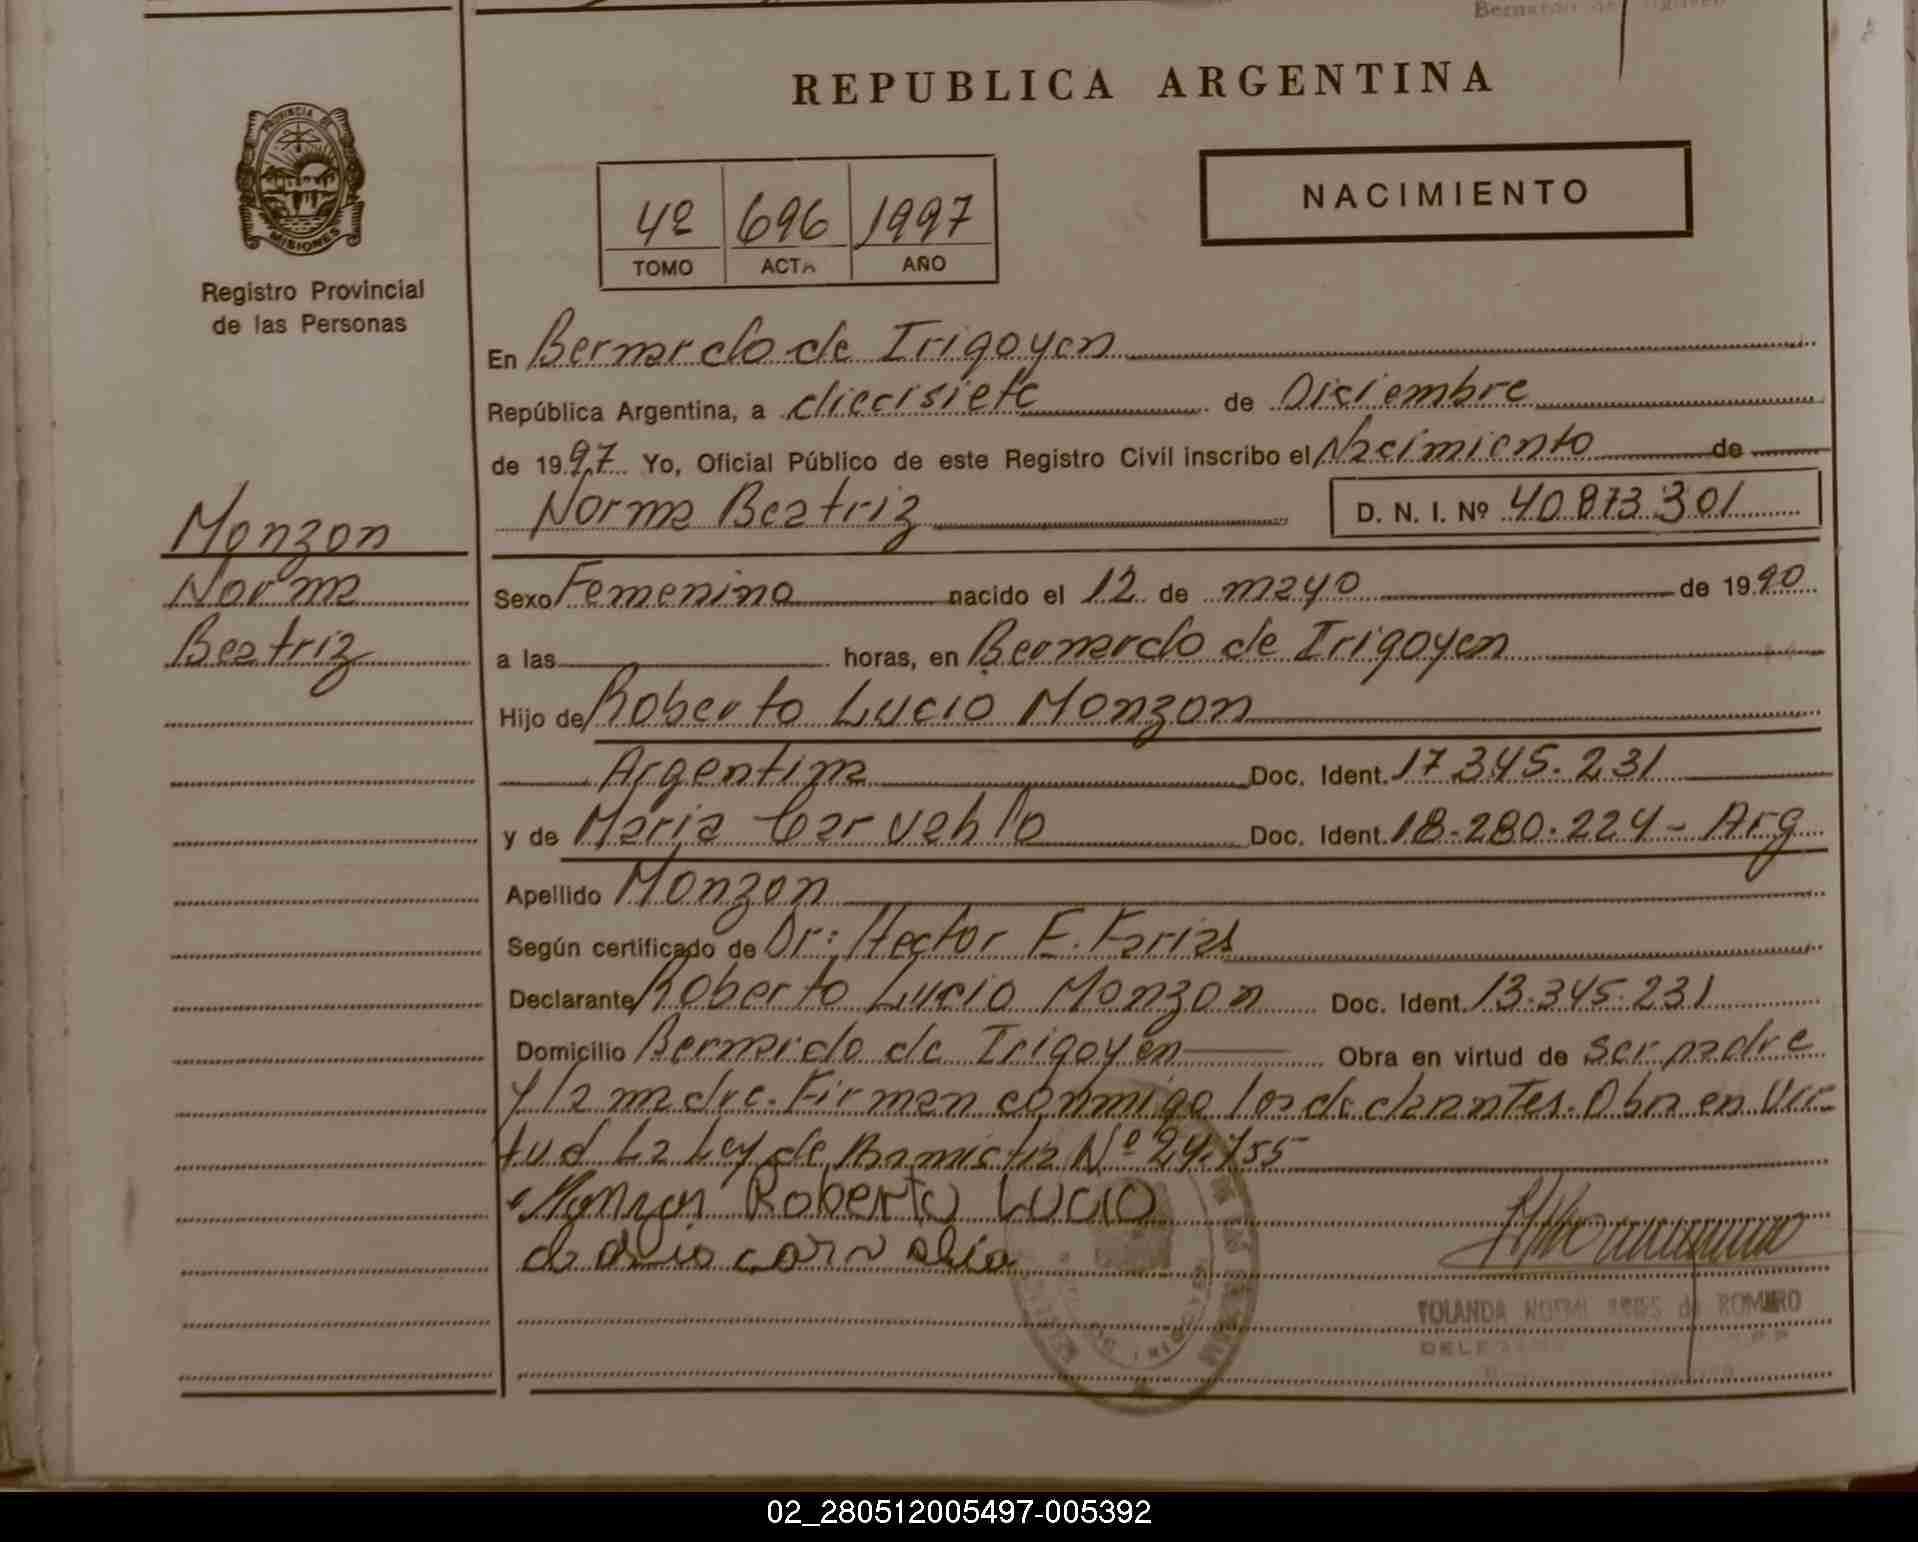 REPUBLICA ARGENTINA
PROVINCIA DE
MISIONES
Registro Provincial
de las Personas
4º 696 1997
TOMO ACTA AÑO
NACIMIENTO
En Bernardo de Irigoyen
República Argentina, a diecisiete de Diciembre
de 1997 Yo, Oficial Público de este Registro Civil inscribo el Nacimiento de
Norma Beatriz D. N. I. Nº 40.873.301
Monzon
Norma
Beatriz
Sexo Femenino nacido el 12 de mayo de 1990
a las horas, en Bernardo de Irigoyen
Hijo de Roberto Lucio Monzon
Argentina Doc. Ident. 17.345.231
y de Maria Carvahlo Doc. Ident. 18.280.224 - Arg
Apellido Monzon
Según certificado de Dr: Hector F. Farias
Declarante Roberto Lucio Monzon Doc. Ident. 13.345.231
Domicilio Bernardo de Irigoyen Obra en virtud de ser padre
y la madre. Firman conmigo los declarantes. Obra en vir-
tud La Ley de Amistia Nº 24.755
Monzon Roberto Lucio
YOLANDA de ROMERO
02_280512005497-005392